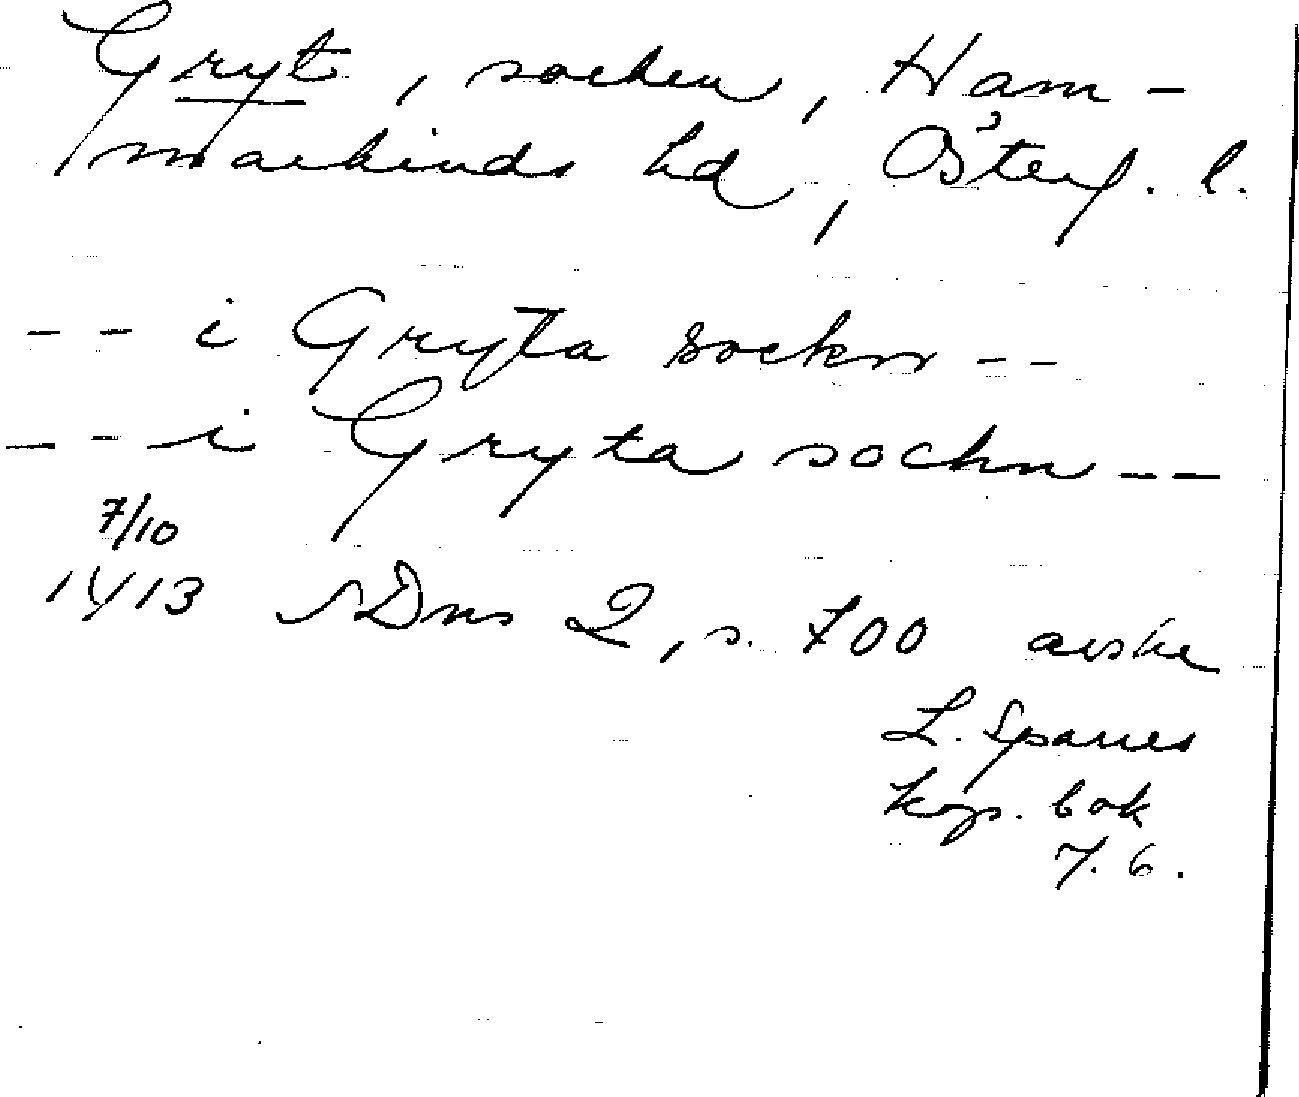 Gryt, socken, Ham-
markinds hd, Österg. l.
-- i Gryta sockn --
-- i Gryta sochn --
7/10
1413 SDns 2, s. 700 avskr
L. Sparres
kop. bok
f. 6.